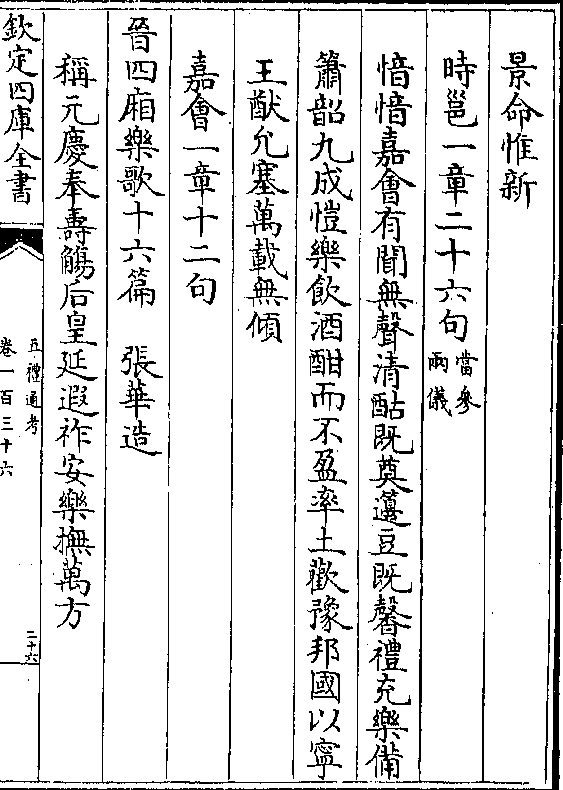 景命惟新
時邕一章二十六句當參兩儀
愔愔嘉會有聞無聲清酤既奠籩豆既馨禮充樂備
簫韶九成愷樂飲酒酣而不盈率土歡豫邦國以寧
王猷允塞萬載無傾
嘉會一章十二句
晉四廂樂歌十六篇　張華造
稱元慶奉壽觴后皇延遐祚安樂撫萬方
欽定四庫全書
五禮通考
卷一百三十六
二十六